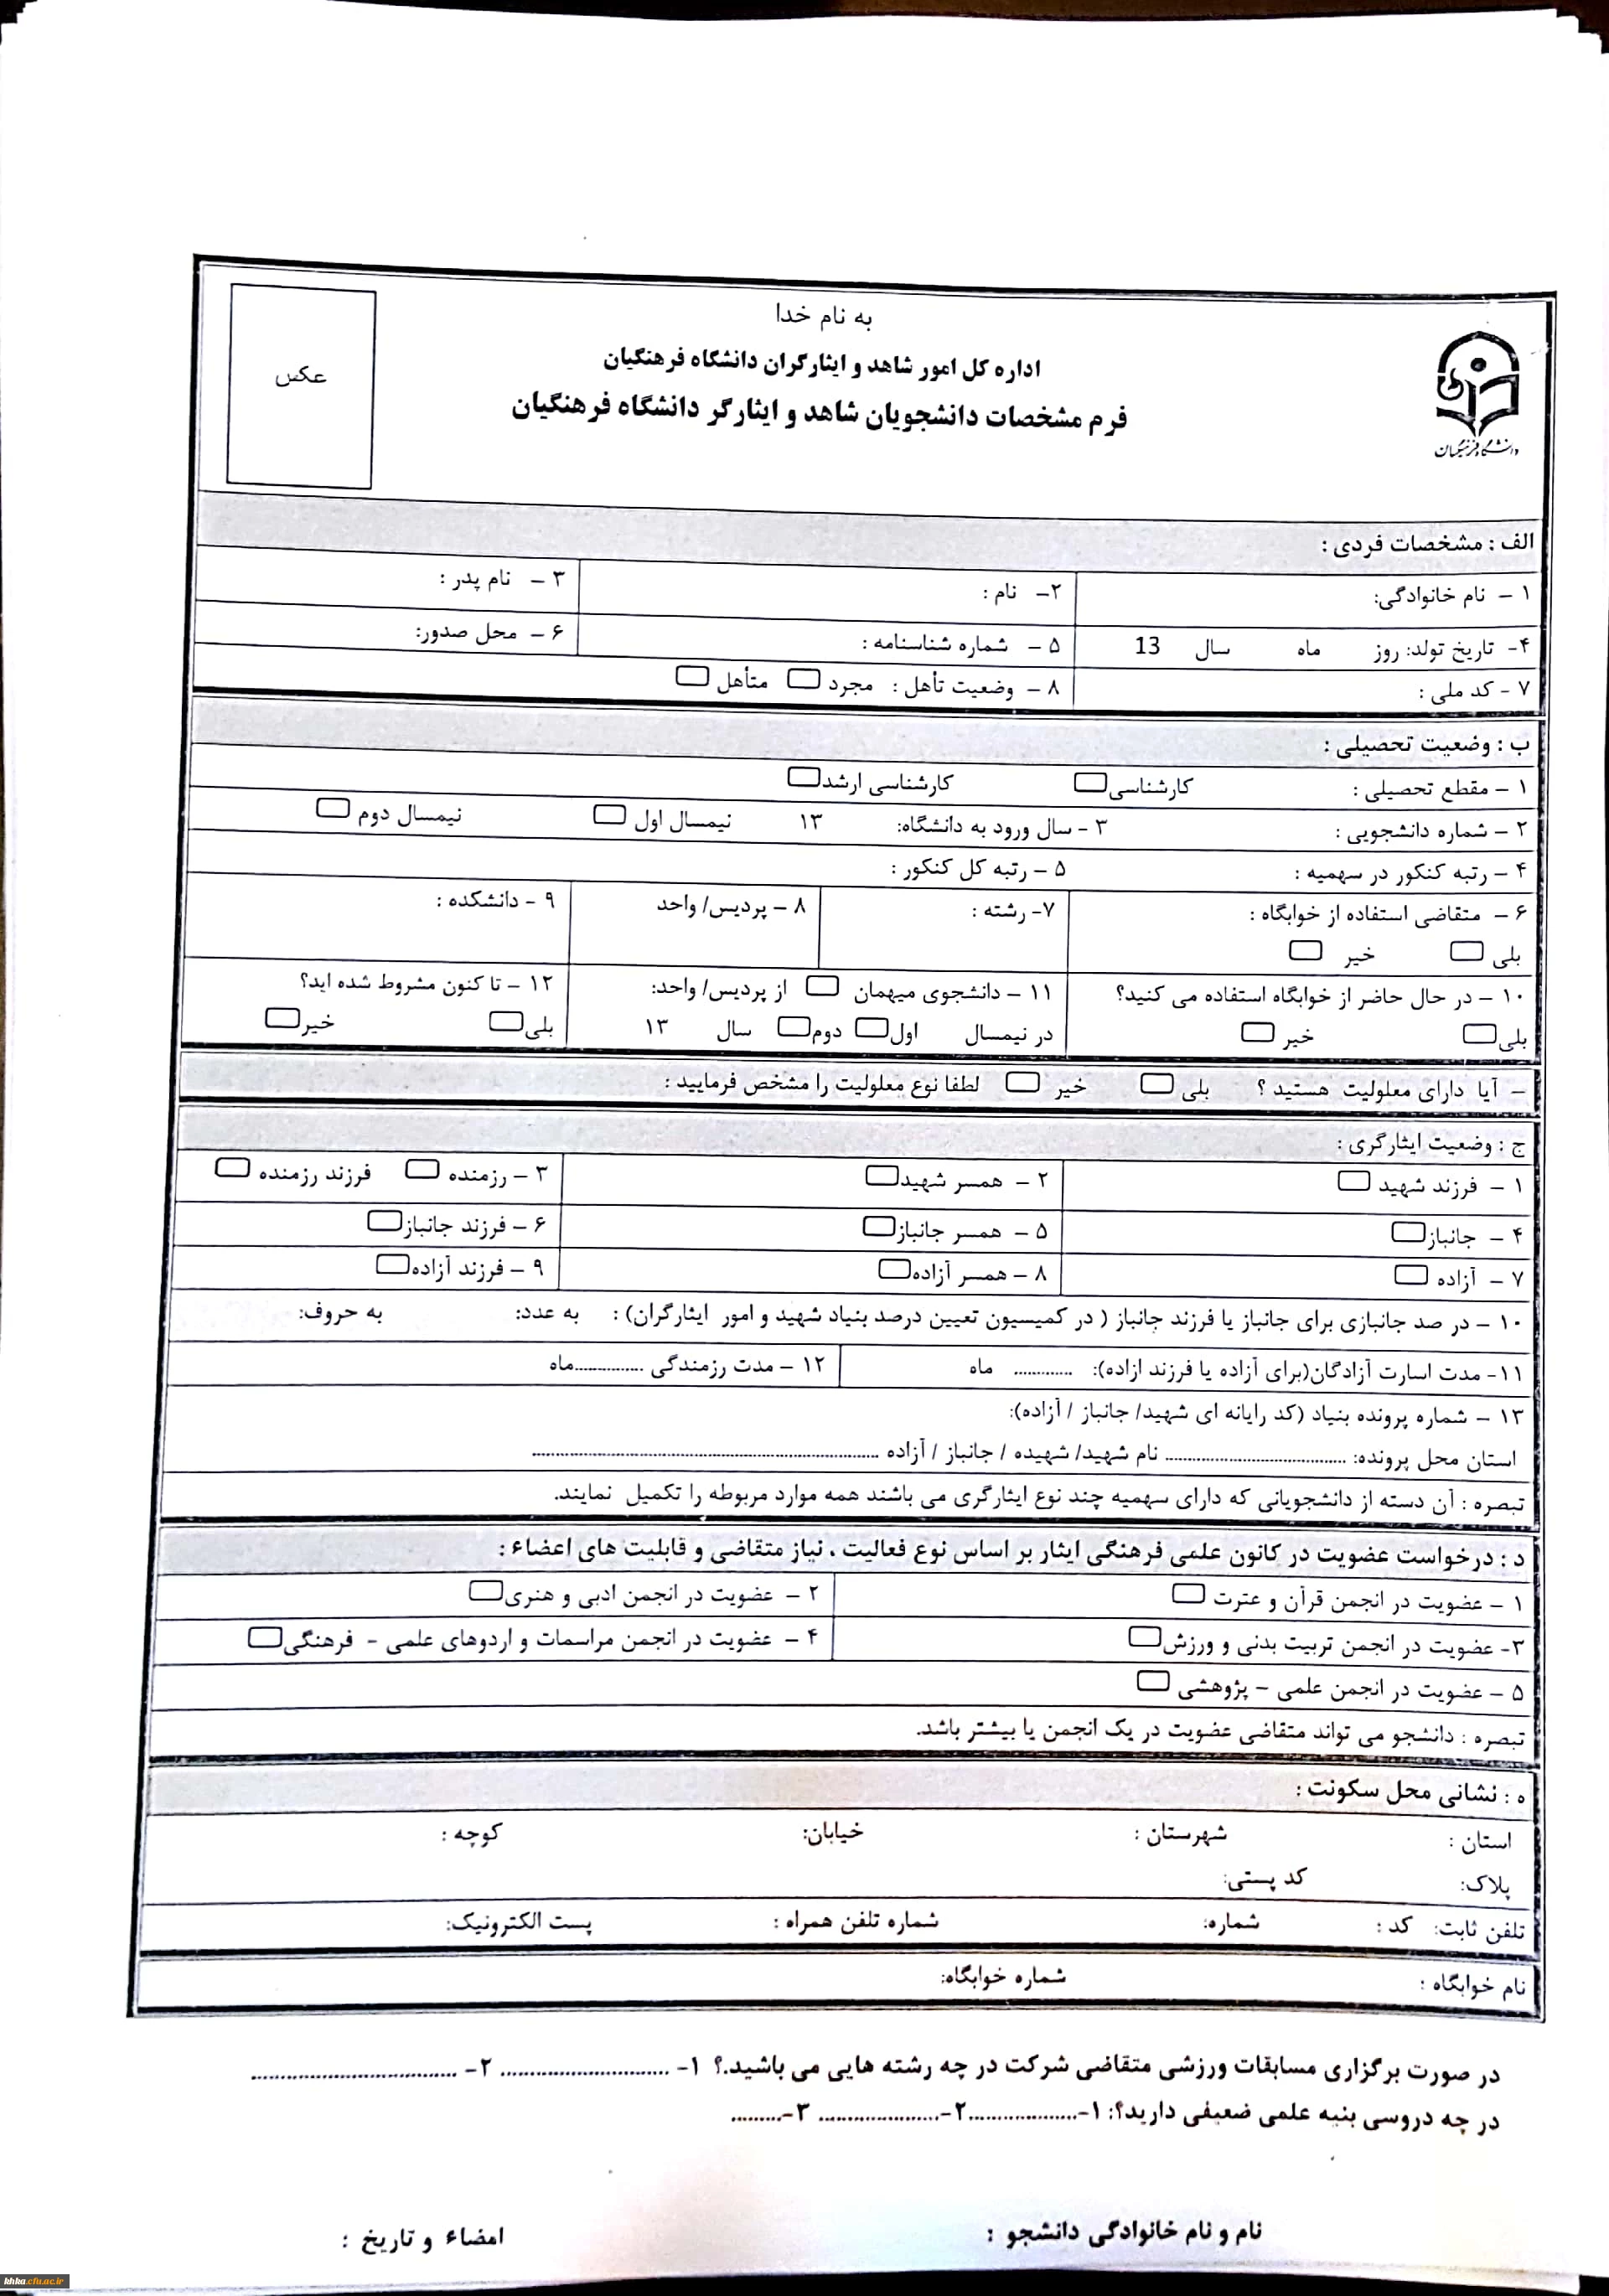 به نام خدا
اداره کل امور شاهد و ایثارگران دانشگاه فرهنگیان
فرم مشخصات دانشجویان شاهد و ایثارگر دانشگاه فرهنگیان
عکس
دانشگاه فرهنگیان
الف : مشخصات فردی :
۱ – نام خانوادگی: ۲– نام : ۳ – نام پدر :
۴– تاریخ تولد: روز ماه سال 13 ۵ – شماره شناسنامه : ۶ – محل صدور:
۷ - کد ملی : ۸ – وضعیت تأهل : مجرد متأهل
ب : وضعیت تحصیلی :
۱ – مقطع تحصیلی : کارشناسی کارشناسی ارشد
۲ – شماره دانشجویی : ۳ - سال ورود به دانشگاه: ۱۳ نیمسال اول نیمسال دوم
۴ – رتبه کنکور در سهمیه : ۵ – رتبه کل کنکور :
۶ – متقاضی استفاده از خوابگاه : ۷- رشته : ۸ – پردیس/ واحد ۹ - دانشکده :
بلی خیر
۱۰ – در حال حاضر از خوابگاه استفاده می کنید؟ ۱۱ – دانشجوی میهمان از پردیس/ واحد: ۱۲ – تا کنون مشروط شده اید؟
بلی خیر در نیمسال اول دوم سال ۱۳ بلی خیر
– آیا دارای معلولیت هستید ؟ بلی خیر لطفا نوع معلولیت را مشخص فرمایید :
ج : وضعیت ایثارگری :
۱ – فرزند شهید ۲ – همسر شهید ۳ – رزمنده فرزند رزمنده
۴ – جانباز ۵ – همسر جانباز ۶ – فرزند جانباز
۷ – آزاده ۸ – همسر آزاده ۹ – فرزند آزاده
۱۰ – در صد جانبازی برای جانباز یا فرزند جانباز ( در کمیسیون تعیین درصد بنیاد شهید و امور ایثارگران) : به عدد: به حروف:
۱۱- مدت اسارت آزادگان(برای آزاده یا فرزند ازاده): ............ ماه ۱۲ – مدت رزمندگی ..............ماه
۱۳ – شماره پرونده بنیاد (کد رایانه ای شهید/ جانباز / آزاده):
استان محل پرونده: ..................................... نام شهید/ شهیده / جانباز / آزاده ........................................................................
تبصره : آن دسته از دانشجویانی که دارای سهمیه چند نوع ایثارگری می باشند همه موارد مربوطه را تکمیل نمایند.
د : درخواست عضویت در کانون علمی فرهنگی ایثار بر اساس نوع فعالیت ، نیاز متقاضی و قابلیت های اعضاء :
۱ – عضویت در انجمن قرآن و عترت ۲ – عضویت در انجمن ادبی و هنری
۳- عضویت در انجمن تربیت بدنی و ورزش ۴ – عضویت در انجمن مراسمات و اردوهای علمی – فرهنگی
۵ – عضویت در انجمن علمی – پژوهشی
تبصره : دانشجو می تواند متقاضی عضویت در یک انجمن یا بیشتر باشد.
ه : نشانی محل سکونت :
استان : شهرستان : خیابان: کوچه :
پلاک: کد پستی:
تلفن ثابت: کد : شماره: شماره تلفن همراه : پست الکترونیک:
نام خوابگاه : شماره خوابگاه:
در صورت برگزاری مسابقات ورزشی متقاضی شرکت در چه رشته هایی می باشید.؟ ۱- ............................ ۲- ..................................
در چه دروسی بنیه علمی ضعیفی دارید؟: ۱-..................۲-.................... ۳-.........
نام و نام خانوادگی دانشجو : امضاء و تاریخ :
khka.cfu.ac.ir